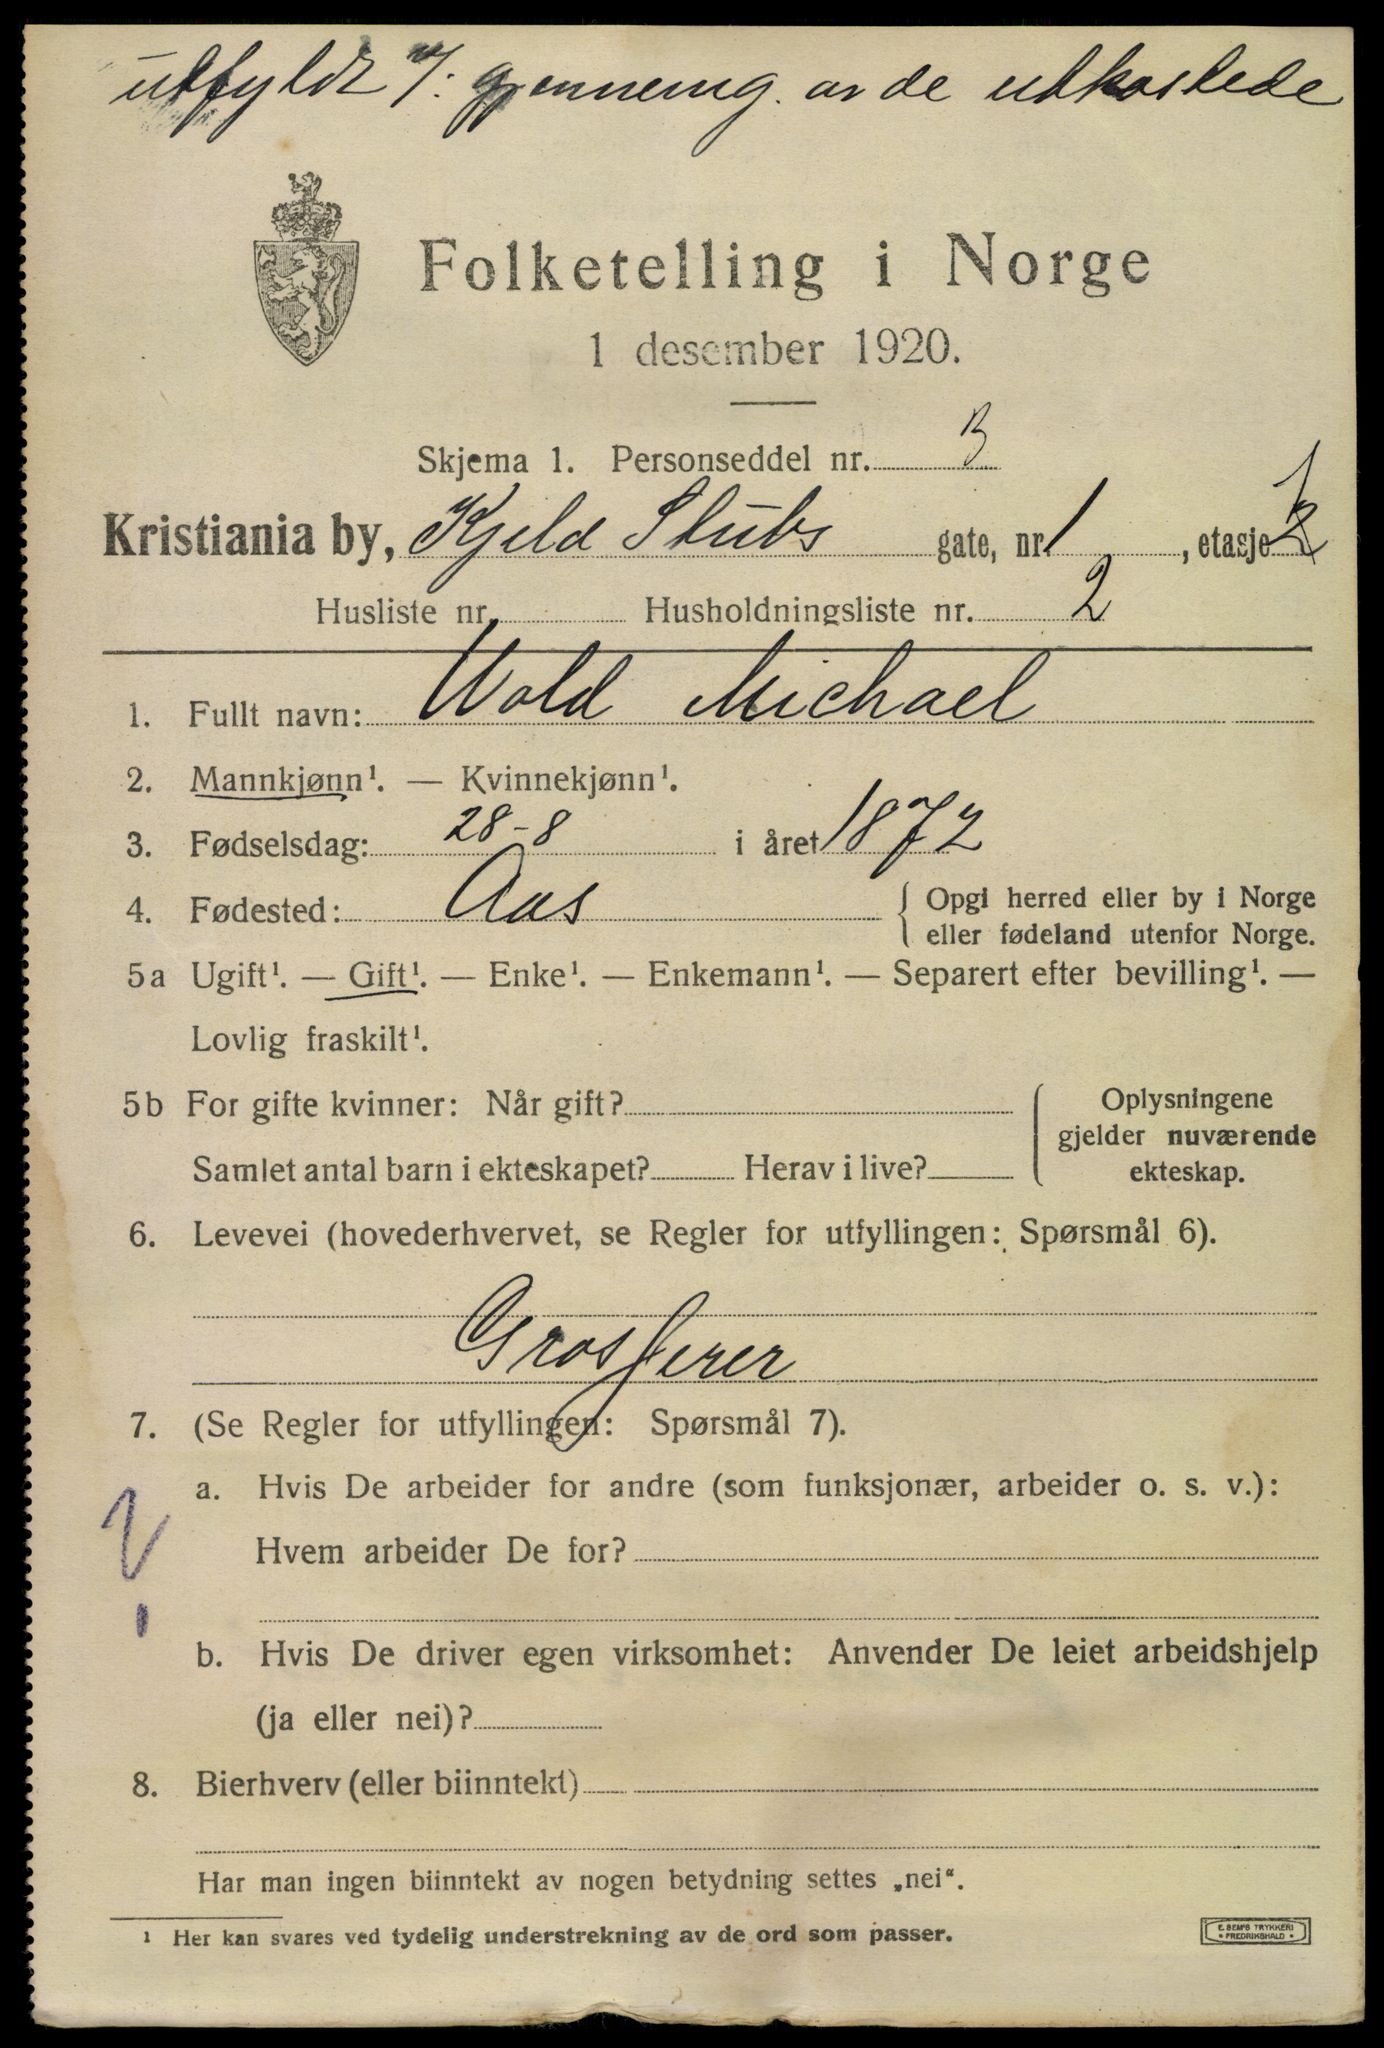 utfyldt v/: gjennemg. av de utkastede
Folketelling i Norge
1 desember 1920.
Skjema 1. Personseddel nr. B
Kristiania by, Kjeld Stubs gate, nr 1, etasje
Husliste nr. Husholdningsliste nr. 2
1. Fullt navn: Wold Michael
2. Mannkjønn¹. — Kvinnekjønn¹.
3. Fødselsdag: 28-8 i året 1872
4. Fødested: Aas { Opgi herred eller by i Norge
eller fødeland utenfor Norge.
5a Ugift¹. — Gift¹. — Enke¹. — Enkemann¹. — Separert efter bevilling¹. —
Lovlig fraskilt¹.
5b For gifte kvinner: Når gift?
Samlet antal barn i ekteskapet? Herav i live?
Oplysningene
gjelder nuværende
ekteskap.
6. Levevei (hovederhvervet, se Regler for utfyllingen: Spørsmål 6).
Grosserer
7. (Se Regler for utfyllingen: Spørsmål 7).
a. Hvis De arbeider for andre (som funksjonær, arbeider o. s. v.):
Hvem arbeider De for?
b. Hvis De driver egen virksomhet: Anvender De leiet arbeidshjelp
(ja eller nei)?
8. Bierhverv (eller biinntekt)
Har man ingen biinntekt av nogen betydning settes „nei“.
¹ Her kan svares ved tydelig understrekning av de ord som passer.
E. SEM'S TRYKKERI
• FREDRIKSHALD •